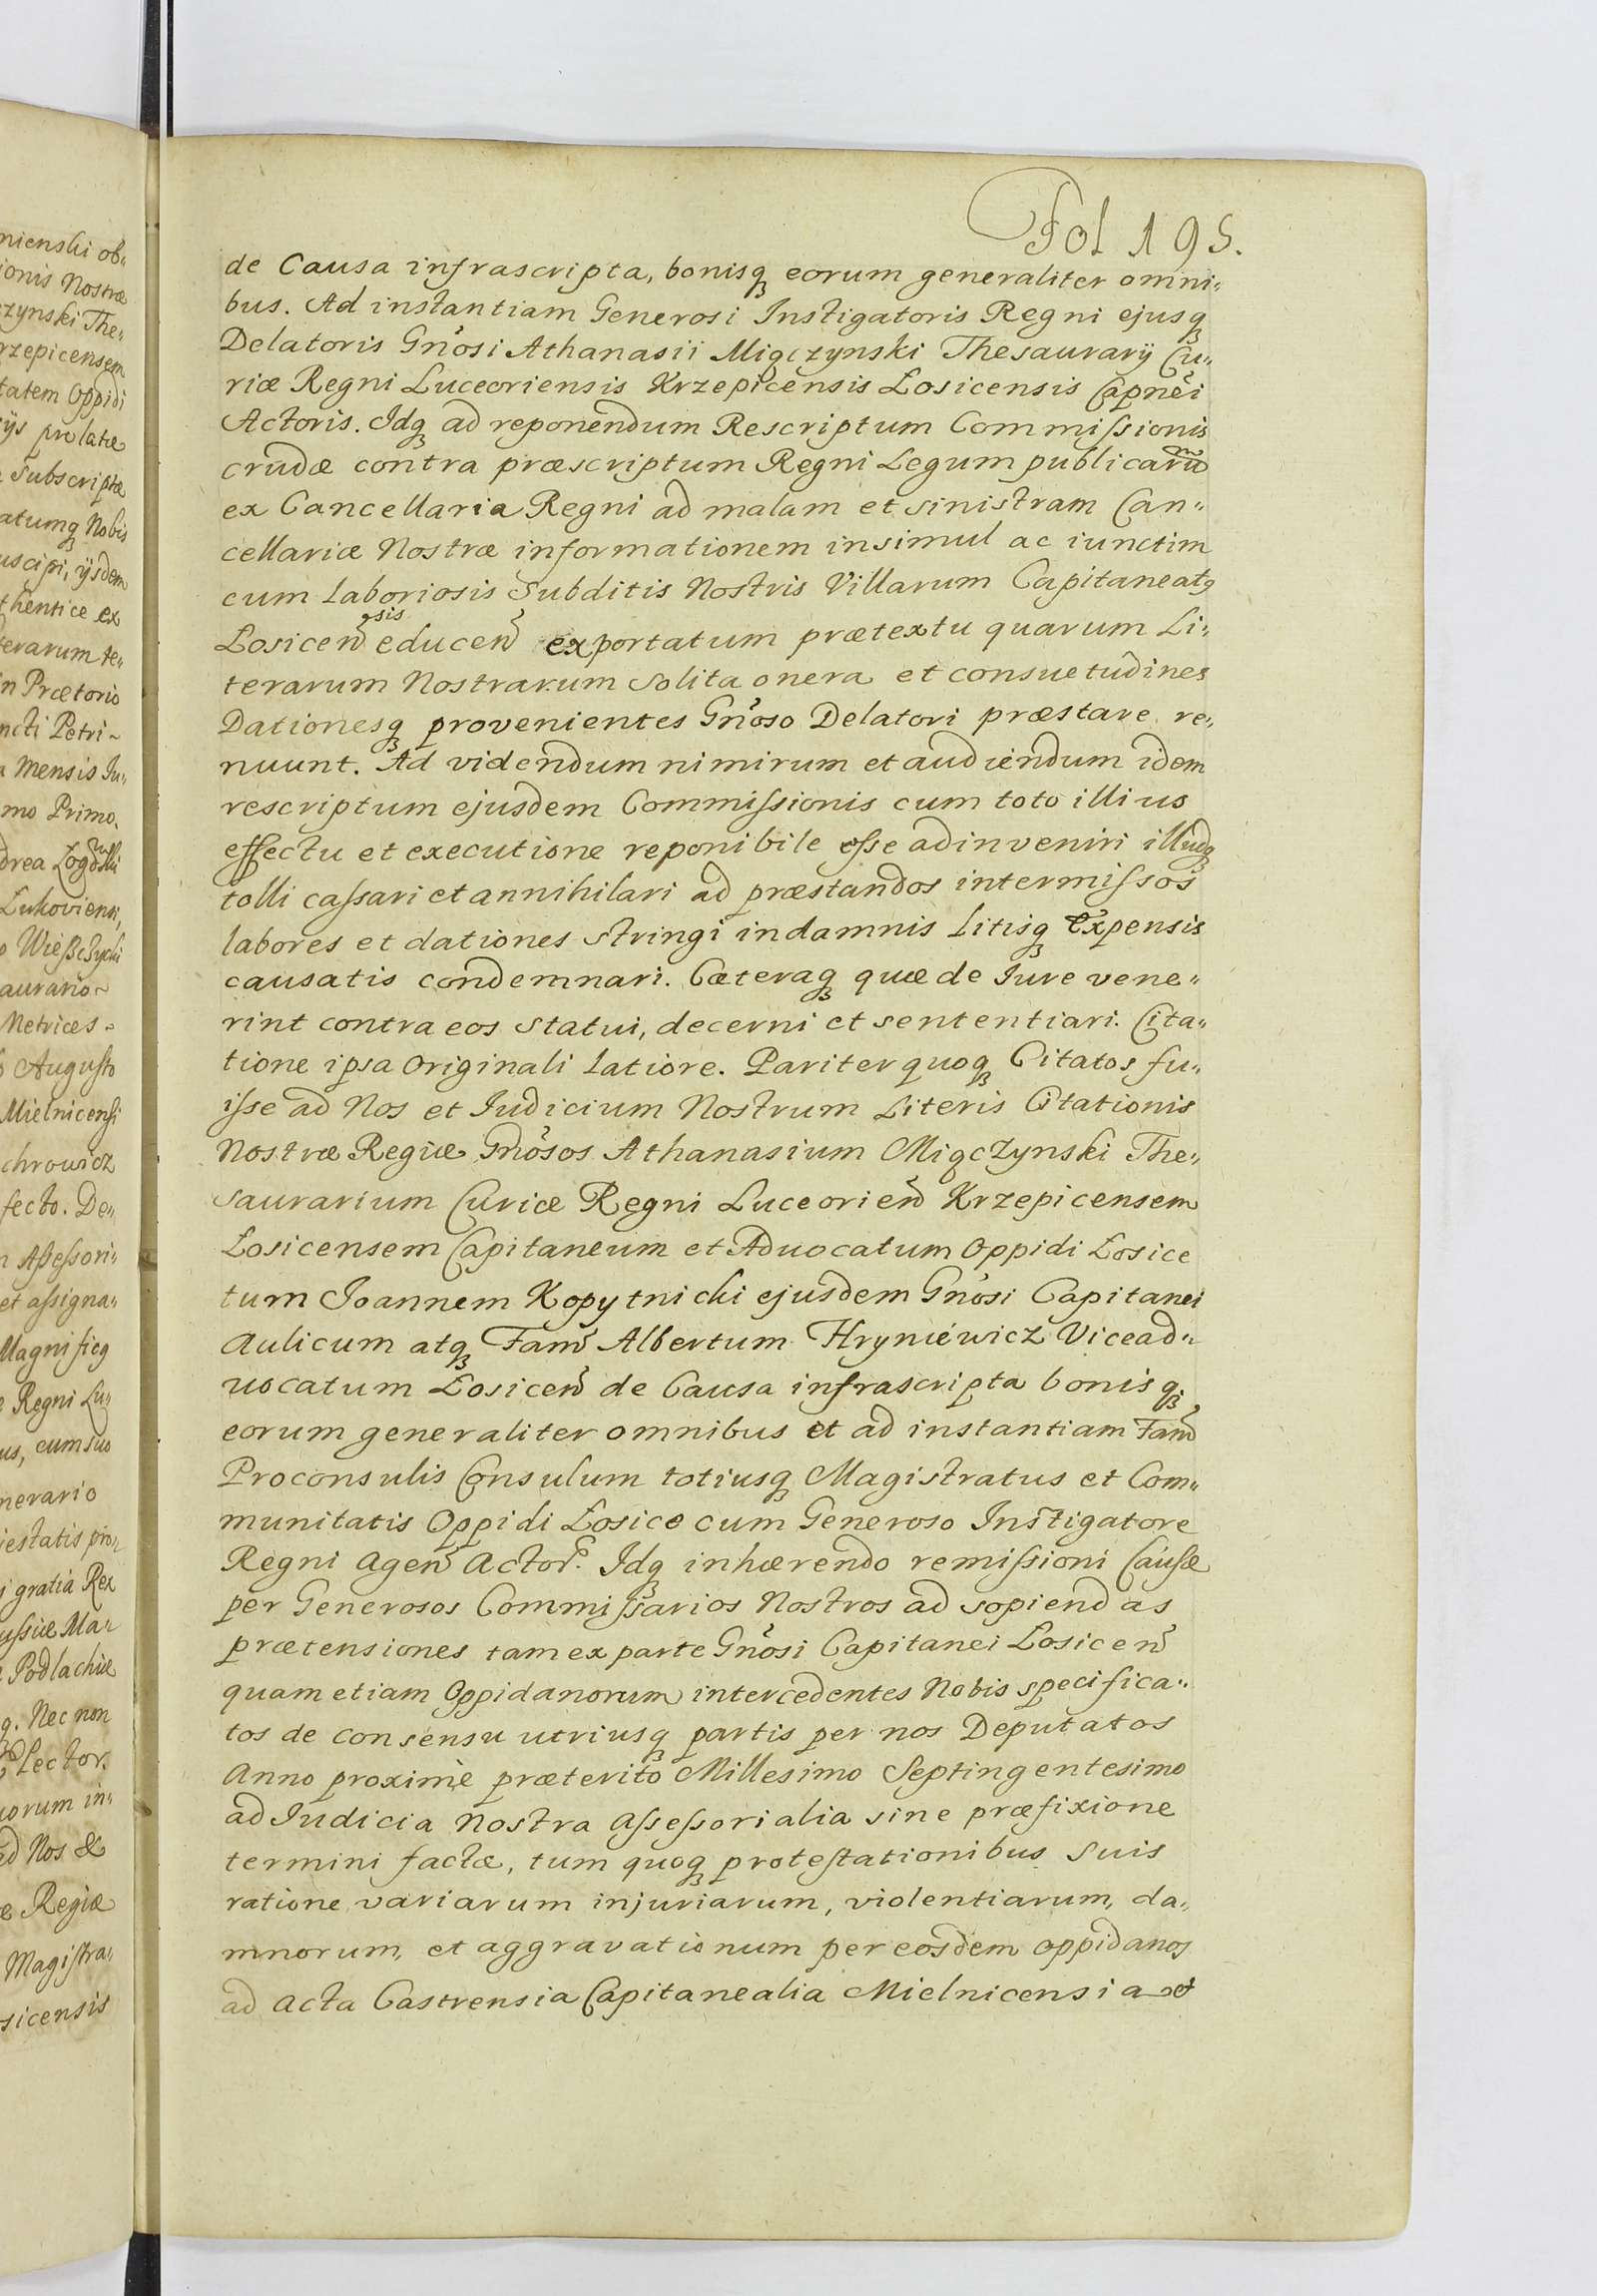 Fol 195.
de Causa infrascripta, bonisq; eorum generaliter omni„
bus. Ad instantiam Generosi Instigatoris Regni ejusq;
Delatoris Gn̄osi Athanasii Miączynski Thesaurarij Cu„
riæ Regni Luceoriensis Krzepicensis Łosicensis Capnēi
Actoris. Idq; ad reponendum Rescriptum Commissionis
crudæ contra præscriptum Regni Legum publicarū
ex Cancellaria Regni ad malam et sinistram Can„
cellariæ Nostræ informationem insimul ac iunctim
cum laboriosis Subditis Nostris Villarum Capitaneatq
Łosicen̄ sis educen̄ exportatum prætextu quarum Li„
terarum Nostrarum solita onera et consuetudines
Dationesq; provenientes Gn̄oso Delatori præstare re„
nuunt. Ad videndum nimirum et audiendum idem
rescriptum ejusdem Commissionis cum toto illius
effectu et executione reponibile esse adinveniri illudq;
tolli cassari et annihilari ad præstandos intermissos
labores et dationes stringi in damnis Litisq; Expensis
causatis condemnari. Cæteraq; quæ de Iure vene„
rint contra eos statui, decerni et sententiari. Cita„
tione ipsa Originali latiore. Pariter quoq; Citatos fu„
isse ad Nos et Iudicium Nostrum Literis Citationis
Nostræ Regiæ Gn̄osos Athanasium Miączynski The„
saurarium Curiæ Regni Luceorien̄ Krzepicensem
Łosicensem Capitaneum et Aduocatum Oppidi Łosice
tum Joannem Kopytnicki ejusdem Gn̄osi Capitanei
Aulicum atq; Fam̄ Albertum Hryniéwicz Vicead„
uocatum Łosicen̄ de Causa infrascripta bonisq;
eorum generaliter omnibus et ad instantiam Fam̄
Proconsulis Consulum totiusq; Magistratus et Com„
munitatis Oppidi Łosice cum Generoso Instigatore
Regni Agen̄ Actor̄. Idq; inhærendo remissioni Causæ
per Generosos Commissarios Nostros ad sopiendas
prætensiones tam ex parte Gn̄osi Capitanei Łosicen̄
quam etiam Oppidanorum intercedentes Nobis specifica„
tos de consensu utriusq; partis per nos Deputatos
Anno proximè præterito Millesimo Septingentesimo
ad Iudicia Nostra Assessorialia sine præfixione
termini factæ, tum quoq; protestationibus suis
ratione variarum injuriarum, violentiarum, da„
mnorum, et aggravationum per eosdem oppidanos
ad Acta Castrensia Capitanealia Mielnicensia et